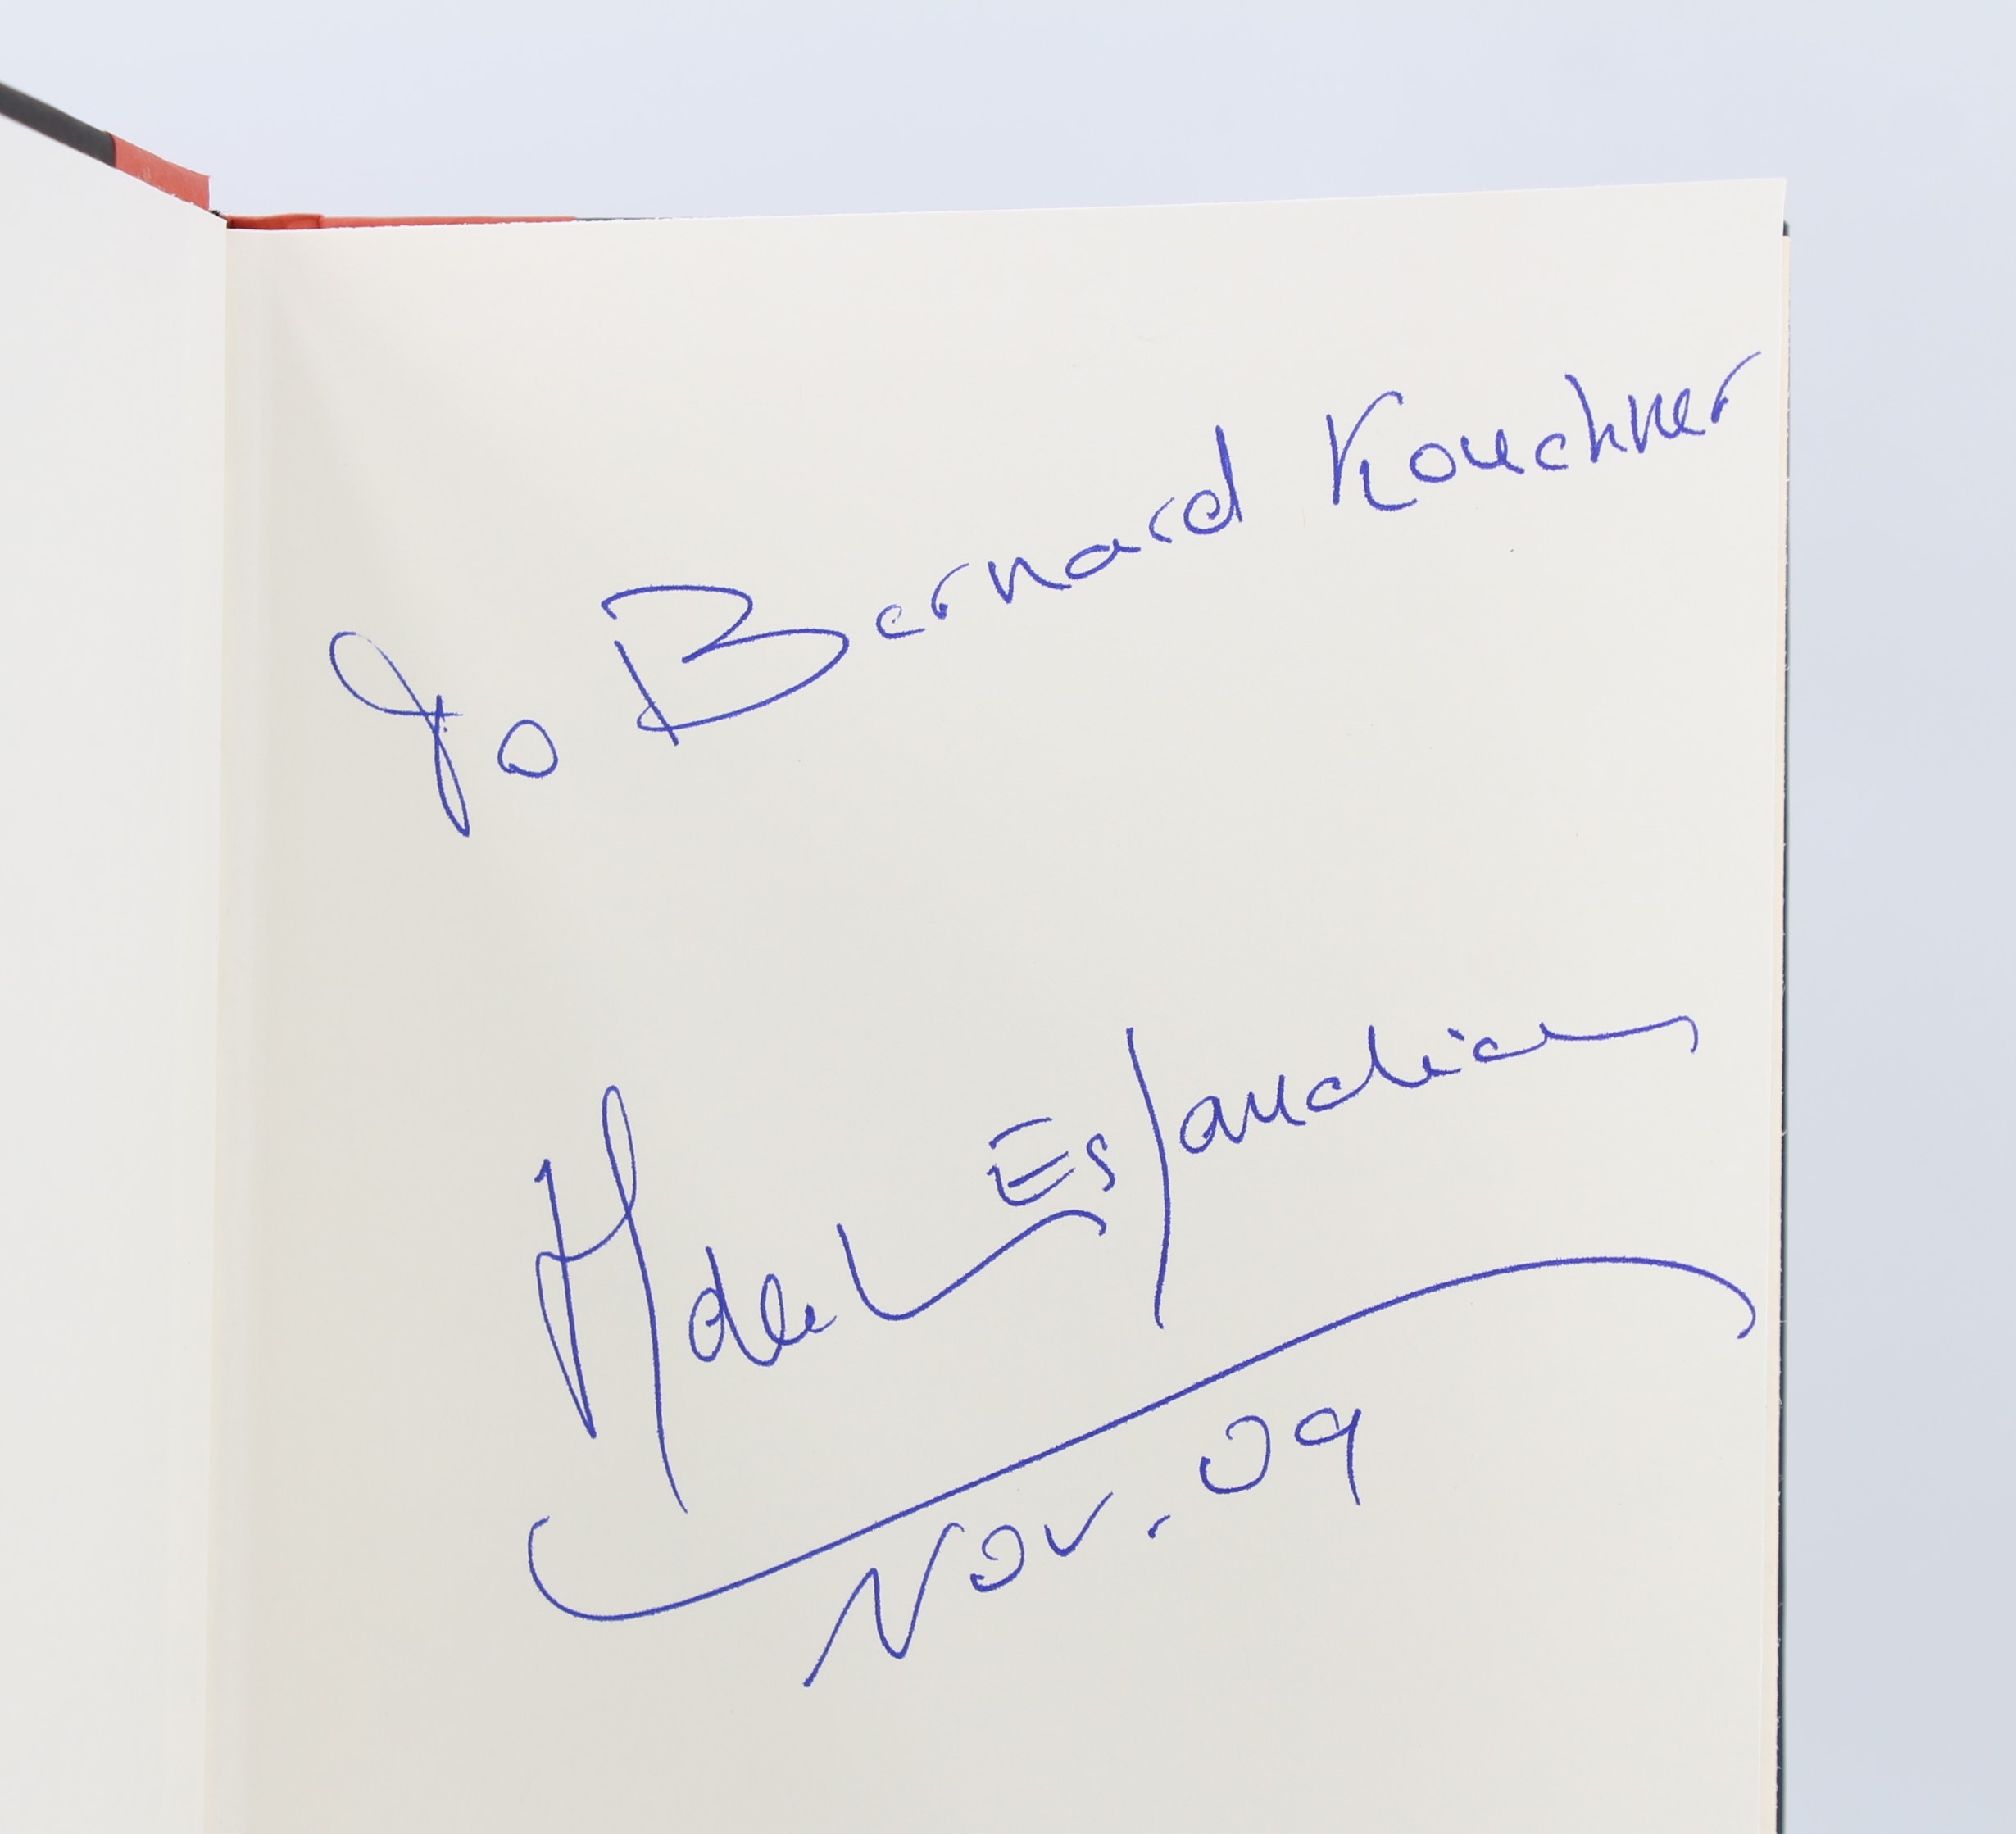 To Bernard Kouchner
Adel Esfandiari
Nov. 09